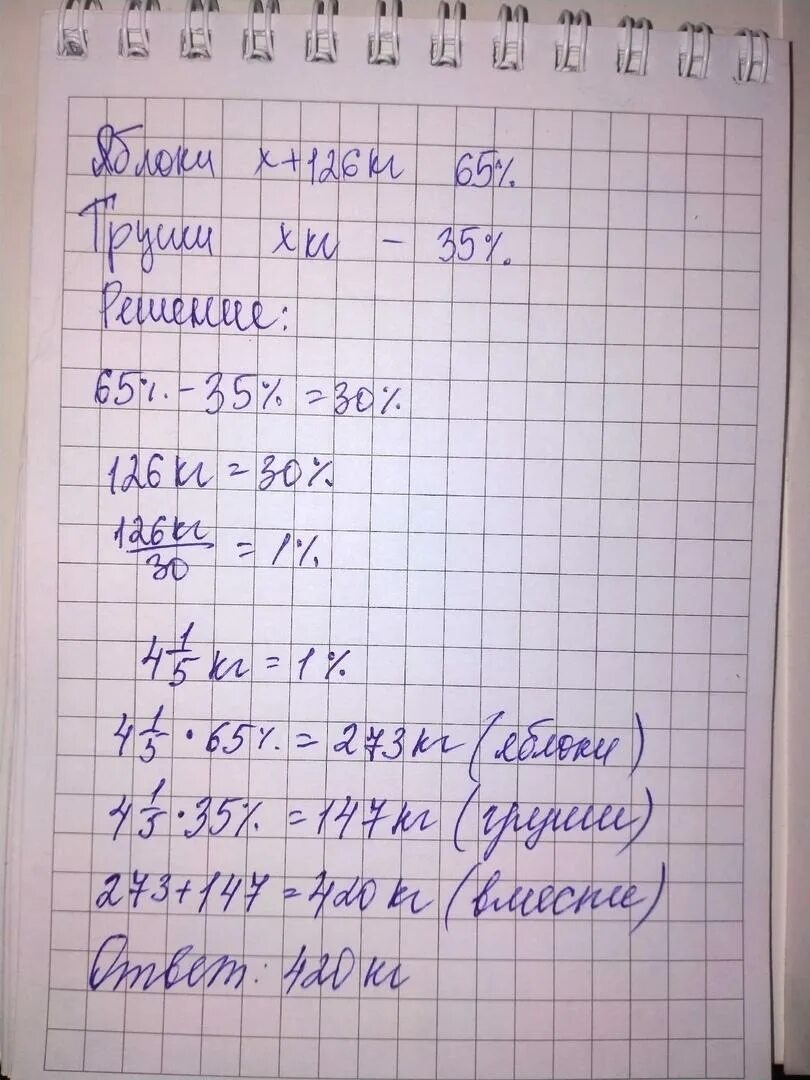 Яблоки х+126кг 65%
Груши х кг - 35%.
Решение:
65% - 35% = 30%
126 кг = 30%
126кг/30 = 1%
4 1/5 кг = 1%
4 1/5 · 65% = 273 кг (яблоки)
4 1/5 · 35% = 147 кг (груши)
273+147 = 420 кг (вместе)
Ответ: 420 кг